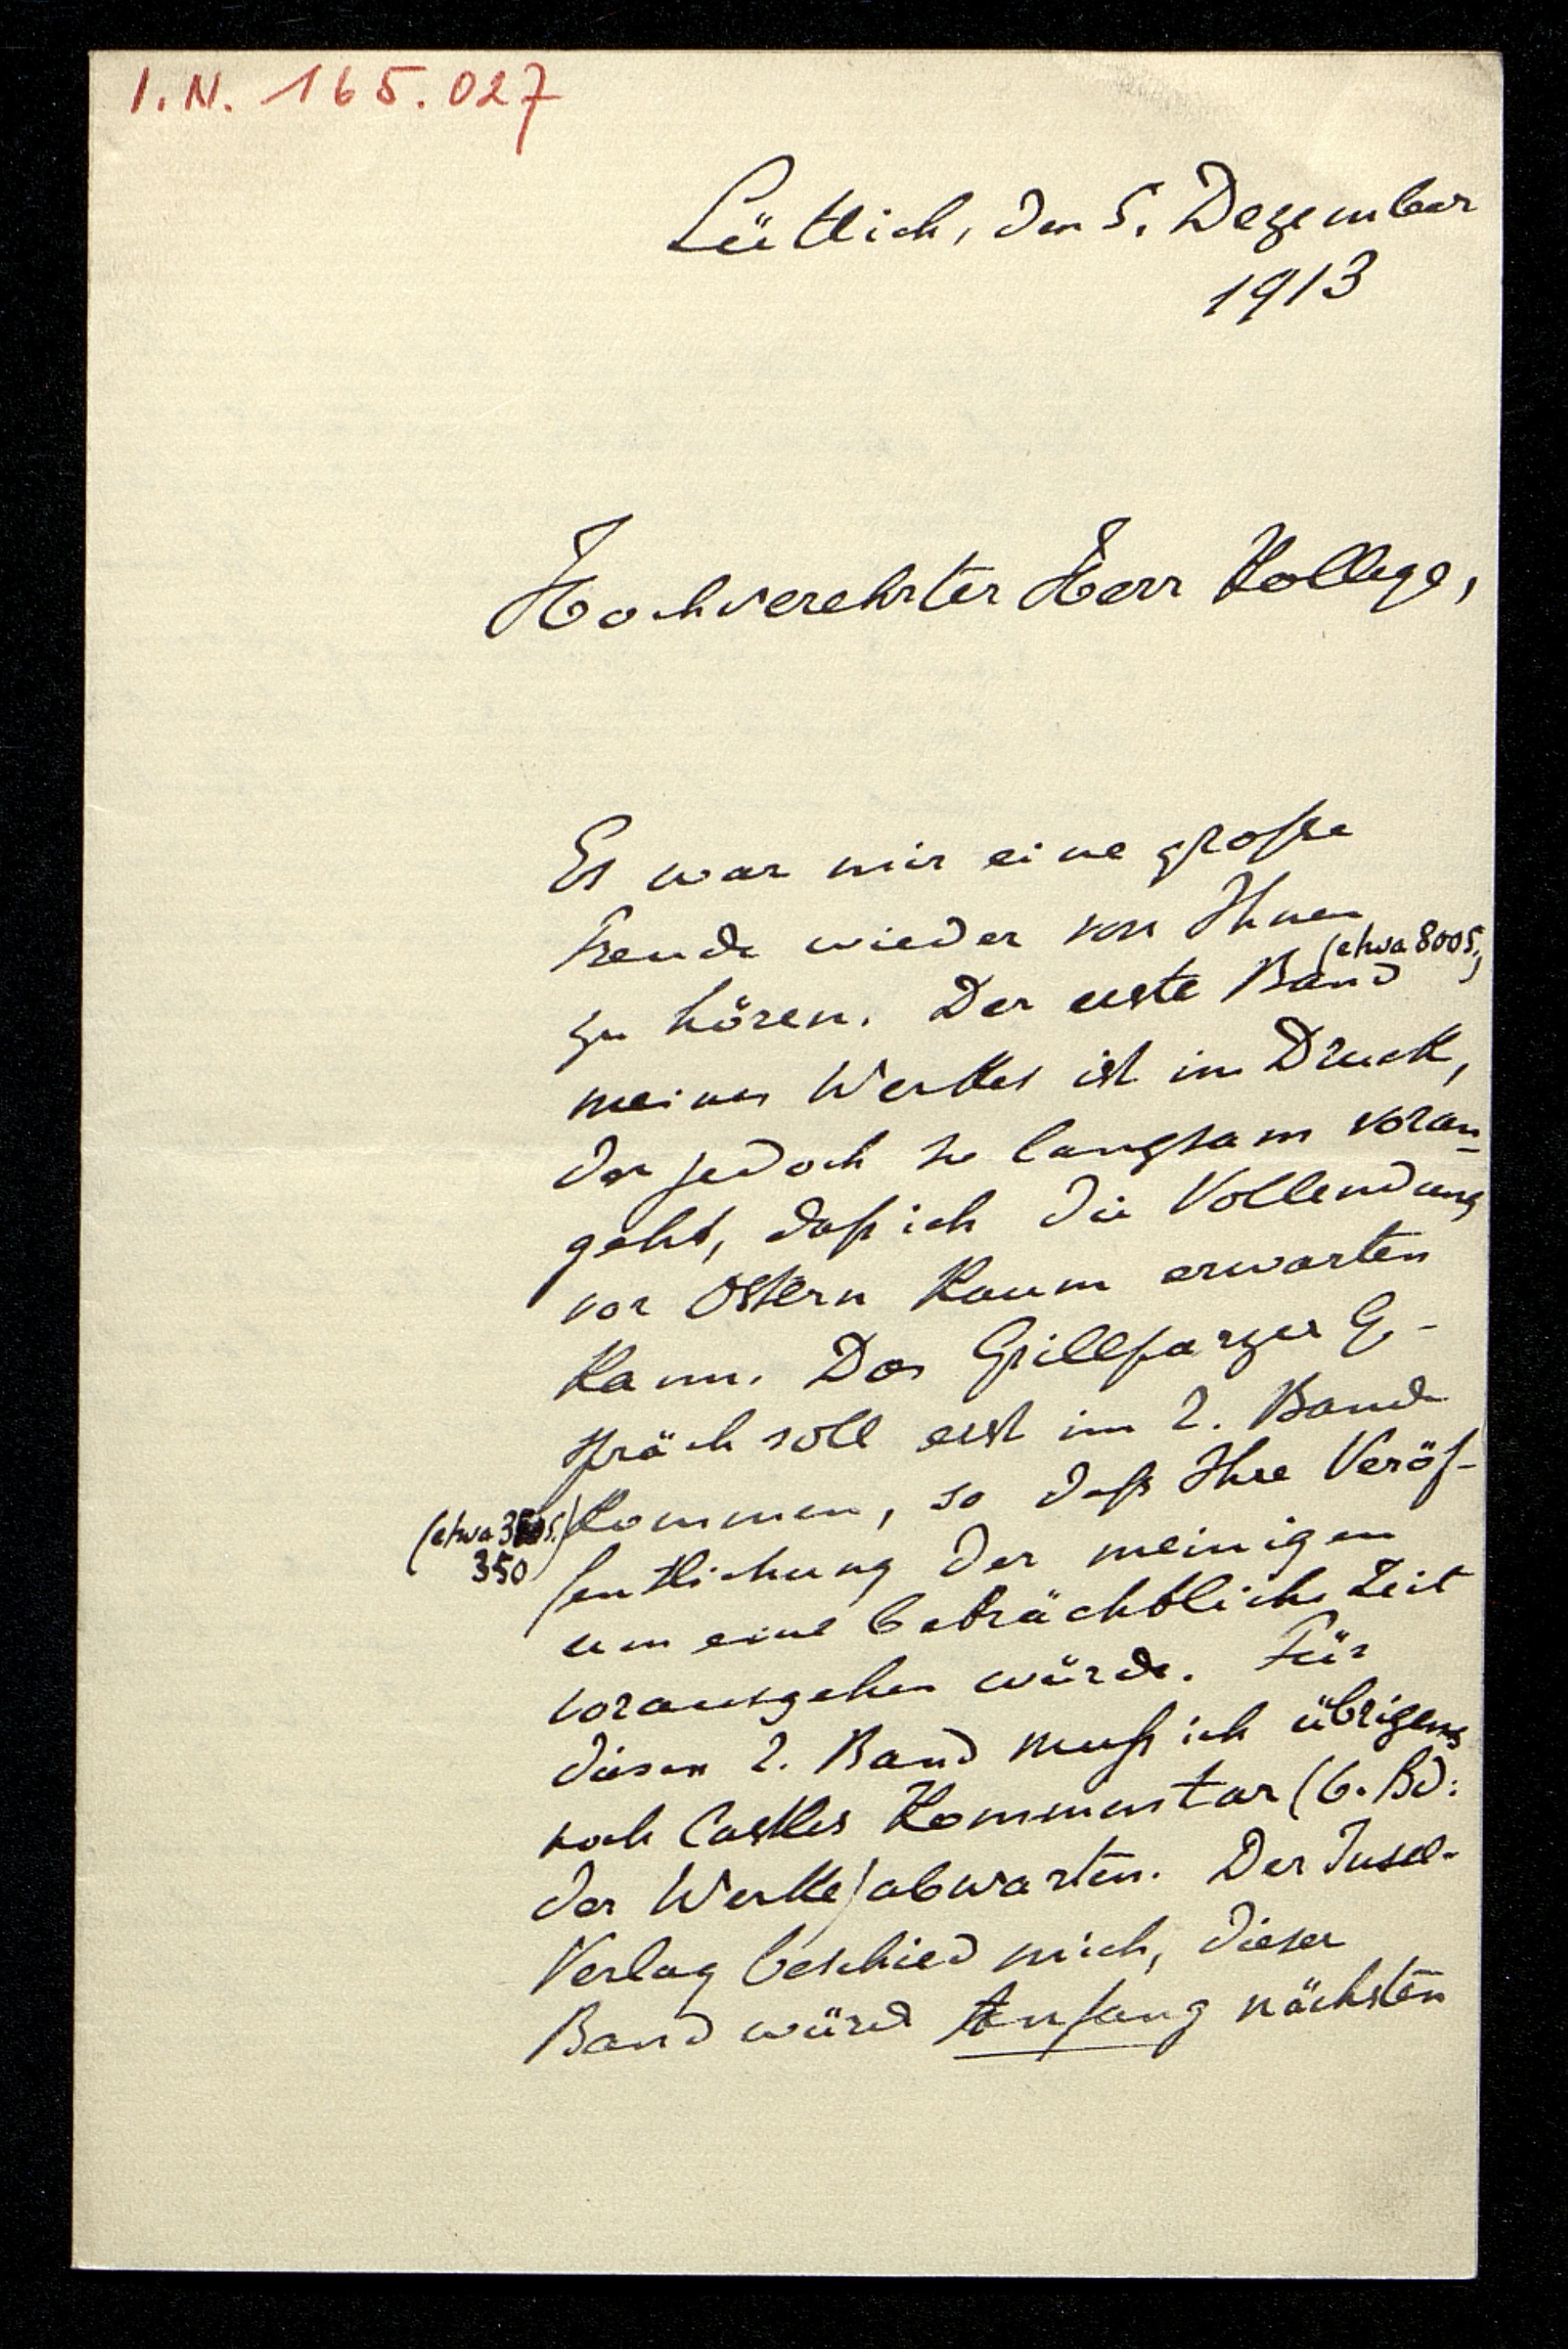 I.N. 165.027
Lüttich, den 5. Dezember
1913
Hochverehrter Herr Kollege,
Es war mir eine große
Freude wieder von Ihnen
(etwa 800 S.)
zu hören. Der erste Band
meines Werkes ist im Druck,
der jedoch so langsam voran-
geht, daß ich die Vollendung
vor Ostern kaum erwarten
kann. Das Grillparzer Ge-
spräch soll erst im 2. Bande
(etwa 350 S.)
350
kommen, so daß Ihre Veröf-
fentlichung der meinigen
um eine beträchtliche Zeit
vorausgehen würde. Für
diesen 2. Band muß ich übrigens
noch Castles Kommentar (6. Bd.
der Werke) abwarten. Der Insel-
Verlag beschied mich, dieser
Band würde Anfang nächsten